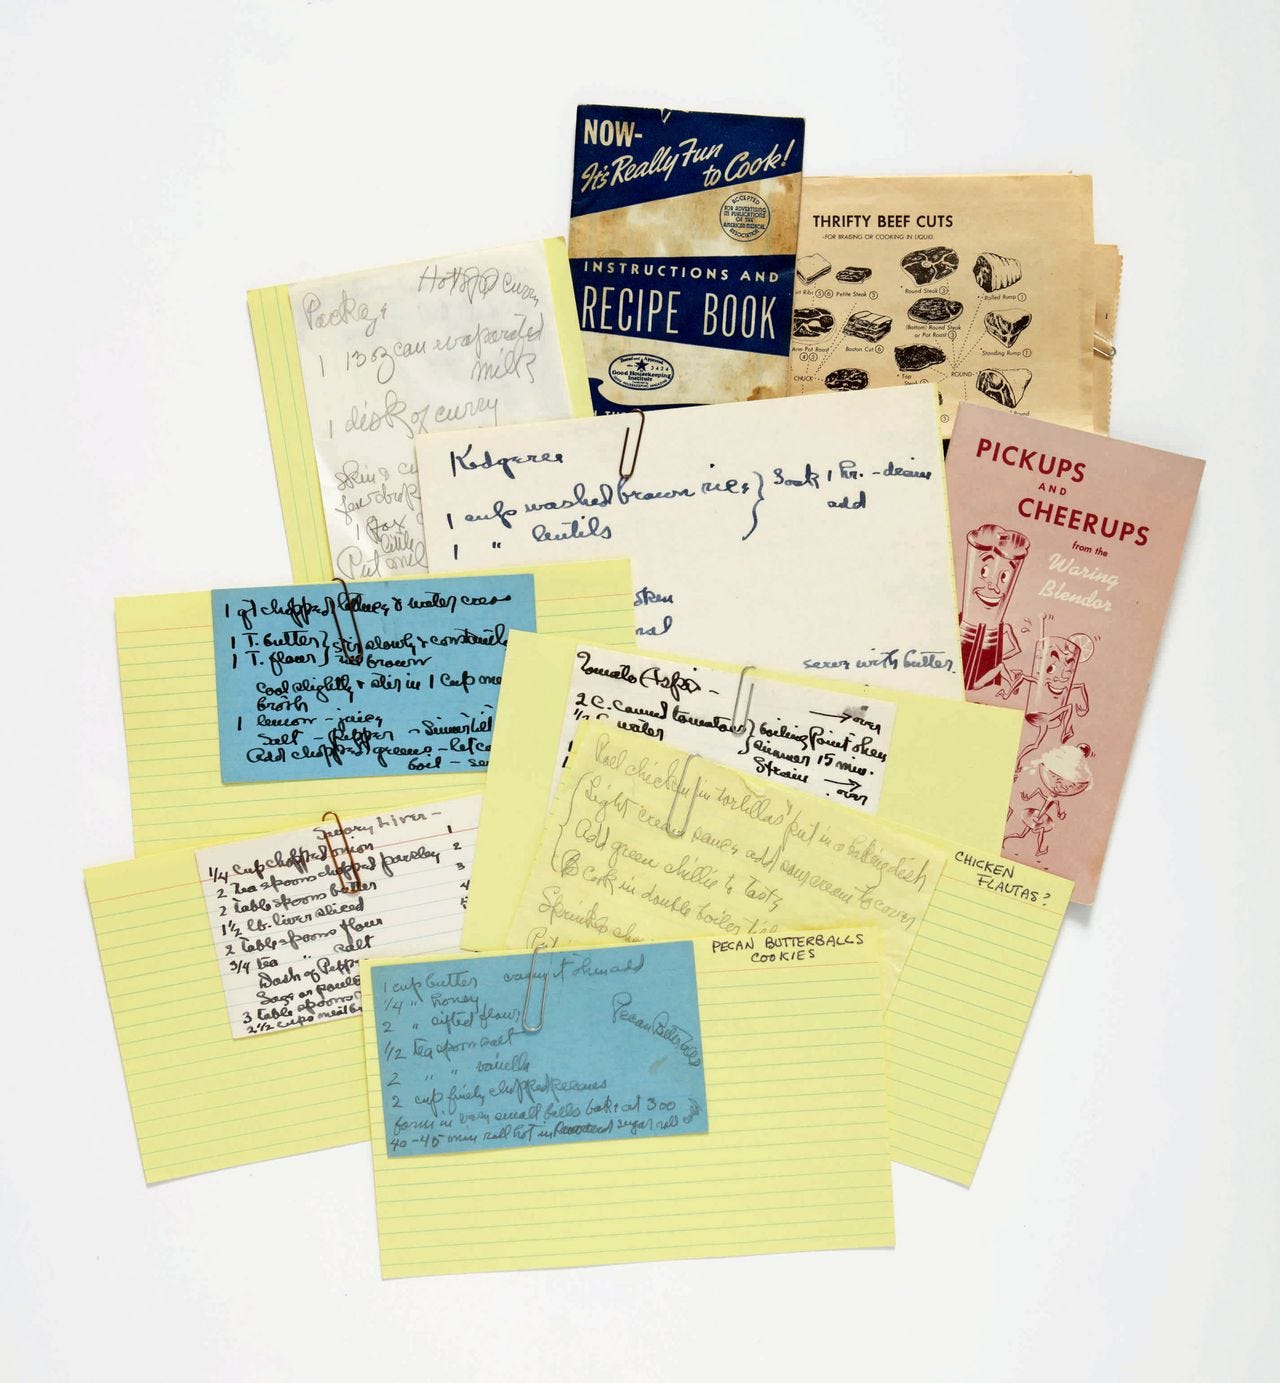 NOW-
It's Really Fun
to Cook!
ACCEPTED
FOR ADVERTISING
IN PUBLICATIONS
OF THE
AMERICAN MEDICAL
ASSOCIATION
INSTRUCTIONS AND
RECIPE BOOK
Good Housekeeping
Institute
THRIFTY BEEF CUTS
-FOR BRAISING OR COOKING IN LIQUID.
rt Ribs 5 6 Petite Steak 5
Round Steak 3
Rolled Rump 1
(Bottom) Round Steak
or Pot Roast 3
Arm Pot Roast
4 5
Boston Cut 6
Standing Rump 1
CHUCK
Top
ROUND
Round
PICKUPS
AND
CHEERUPS
from the
Waring
Blendor
curry
Package
1 13 oz can evaporated
milk
1 disk of curry
Skin
few drops
1
little
Put
Kedgeree
1 cup washed brown rice } Soak 1 hr. - drain
1 " lentils
add
serve with butter.
1 qt chopped lettuce & water cress
1 T. butter } stir slowly & constantly
1 T. flour } till brown
Cool slightly & stir in 1 cup
broth
1 lemon - juice
Salt - Pepper - Simmer
Add chopped greens - let
boil -
Tomato Aspic -
→ over
2 C. Canned tomatoes } boiling Point then
1/2 C water
simmer 15 min.
Strain →
over
Roll chicken in tortillas put in a baking dish
Light cream sauce, add sour cream to cover
Add green chillie to taste
Cook in double boiler
Sprinkle
Put
CHICKEN
FLAUTAS?
Savory Liver -
1/4 Cup chopped onion
2 tea spoons chopped parsley
2 Table spoons butter
1 1/2 lb. liver sliced
2 Table spoons flour
3/4 tea " salt
Dash of Pepper
Sage or
3 table spoons
2 1/2 cups
1
2
3
4
PECAN BUTTERBALLS
COOKIES
1 cup butter cream it then add
1/4 " honey
2 " sifted flour
1/2 tea spoon salt
2 " " vanilla
2 cup finely chopped pecans
Pecan Butterballs
form in very small balls bake at 300
40-45 min roll hot in powdered sugar roll